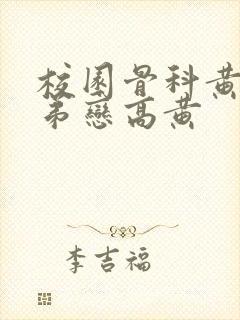 校園骨科黃
弟戀高黃
李吉福